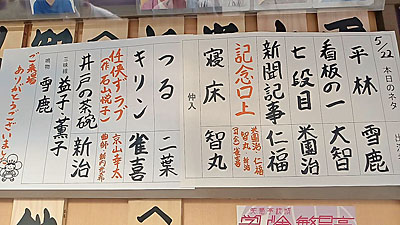 5/22 本日のネタ
平林 雪鹿
看板の一 大智
七段目 米團治
新聞記事 仁福
記念口上
米團治 仁福
智丸 新治
寝床 智丸
仲入
つる 二葉
キリン 雀喜
任侠ずラブ
(作 石山悦子)
京山幸太
井戸の茶碗 新治
三味線 益子 薫子
鳴物 雪鹿
ご来場
ありがとうございました